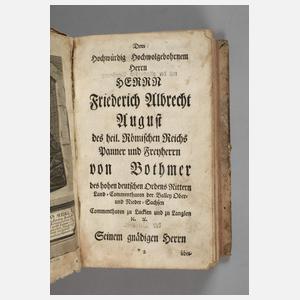 Dem
Hochwürdig Hochwolgebohrnem
Herrn
HERRN
Friederich Albrecht
August
des heil. Römischen Reichs
Panner und Freyherrn
von Bothmer
des hohen deutschen Ordens Rittern
Land-Commenthuren der Balley Ober-
und Nieder-Sachsen
Commenthuren zu Lucklen und zu Langlen
ꝛc. ꝛc.
Seinem gnädigen Herrn
* 2
über-